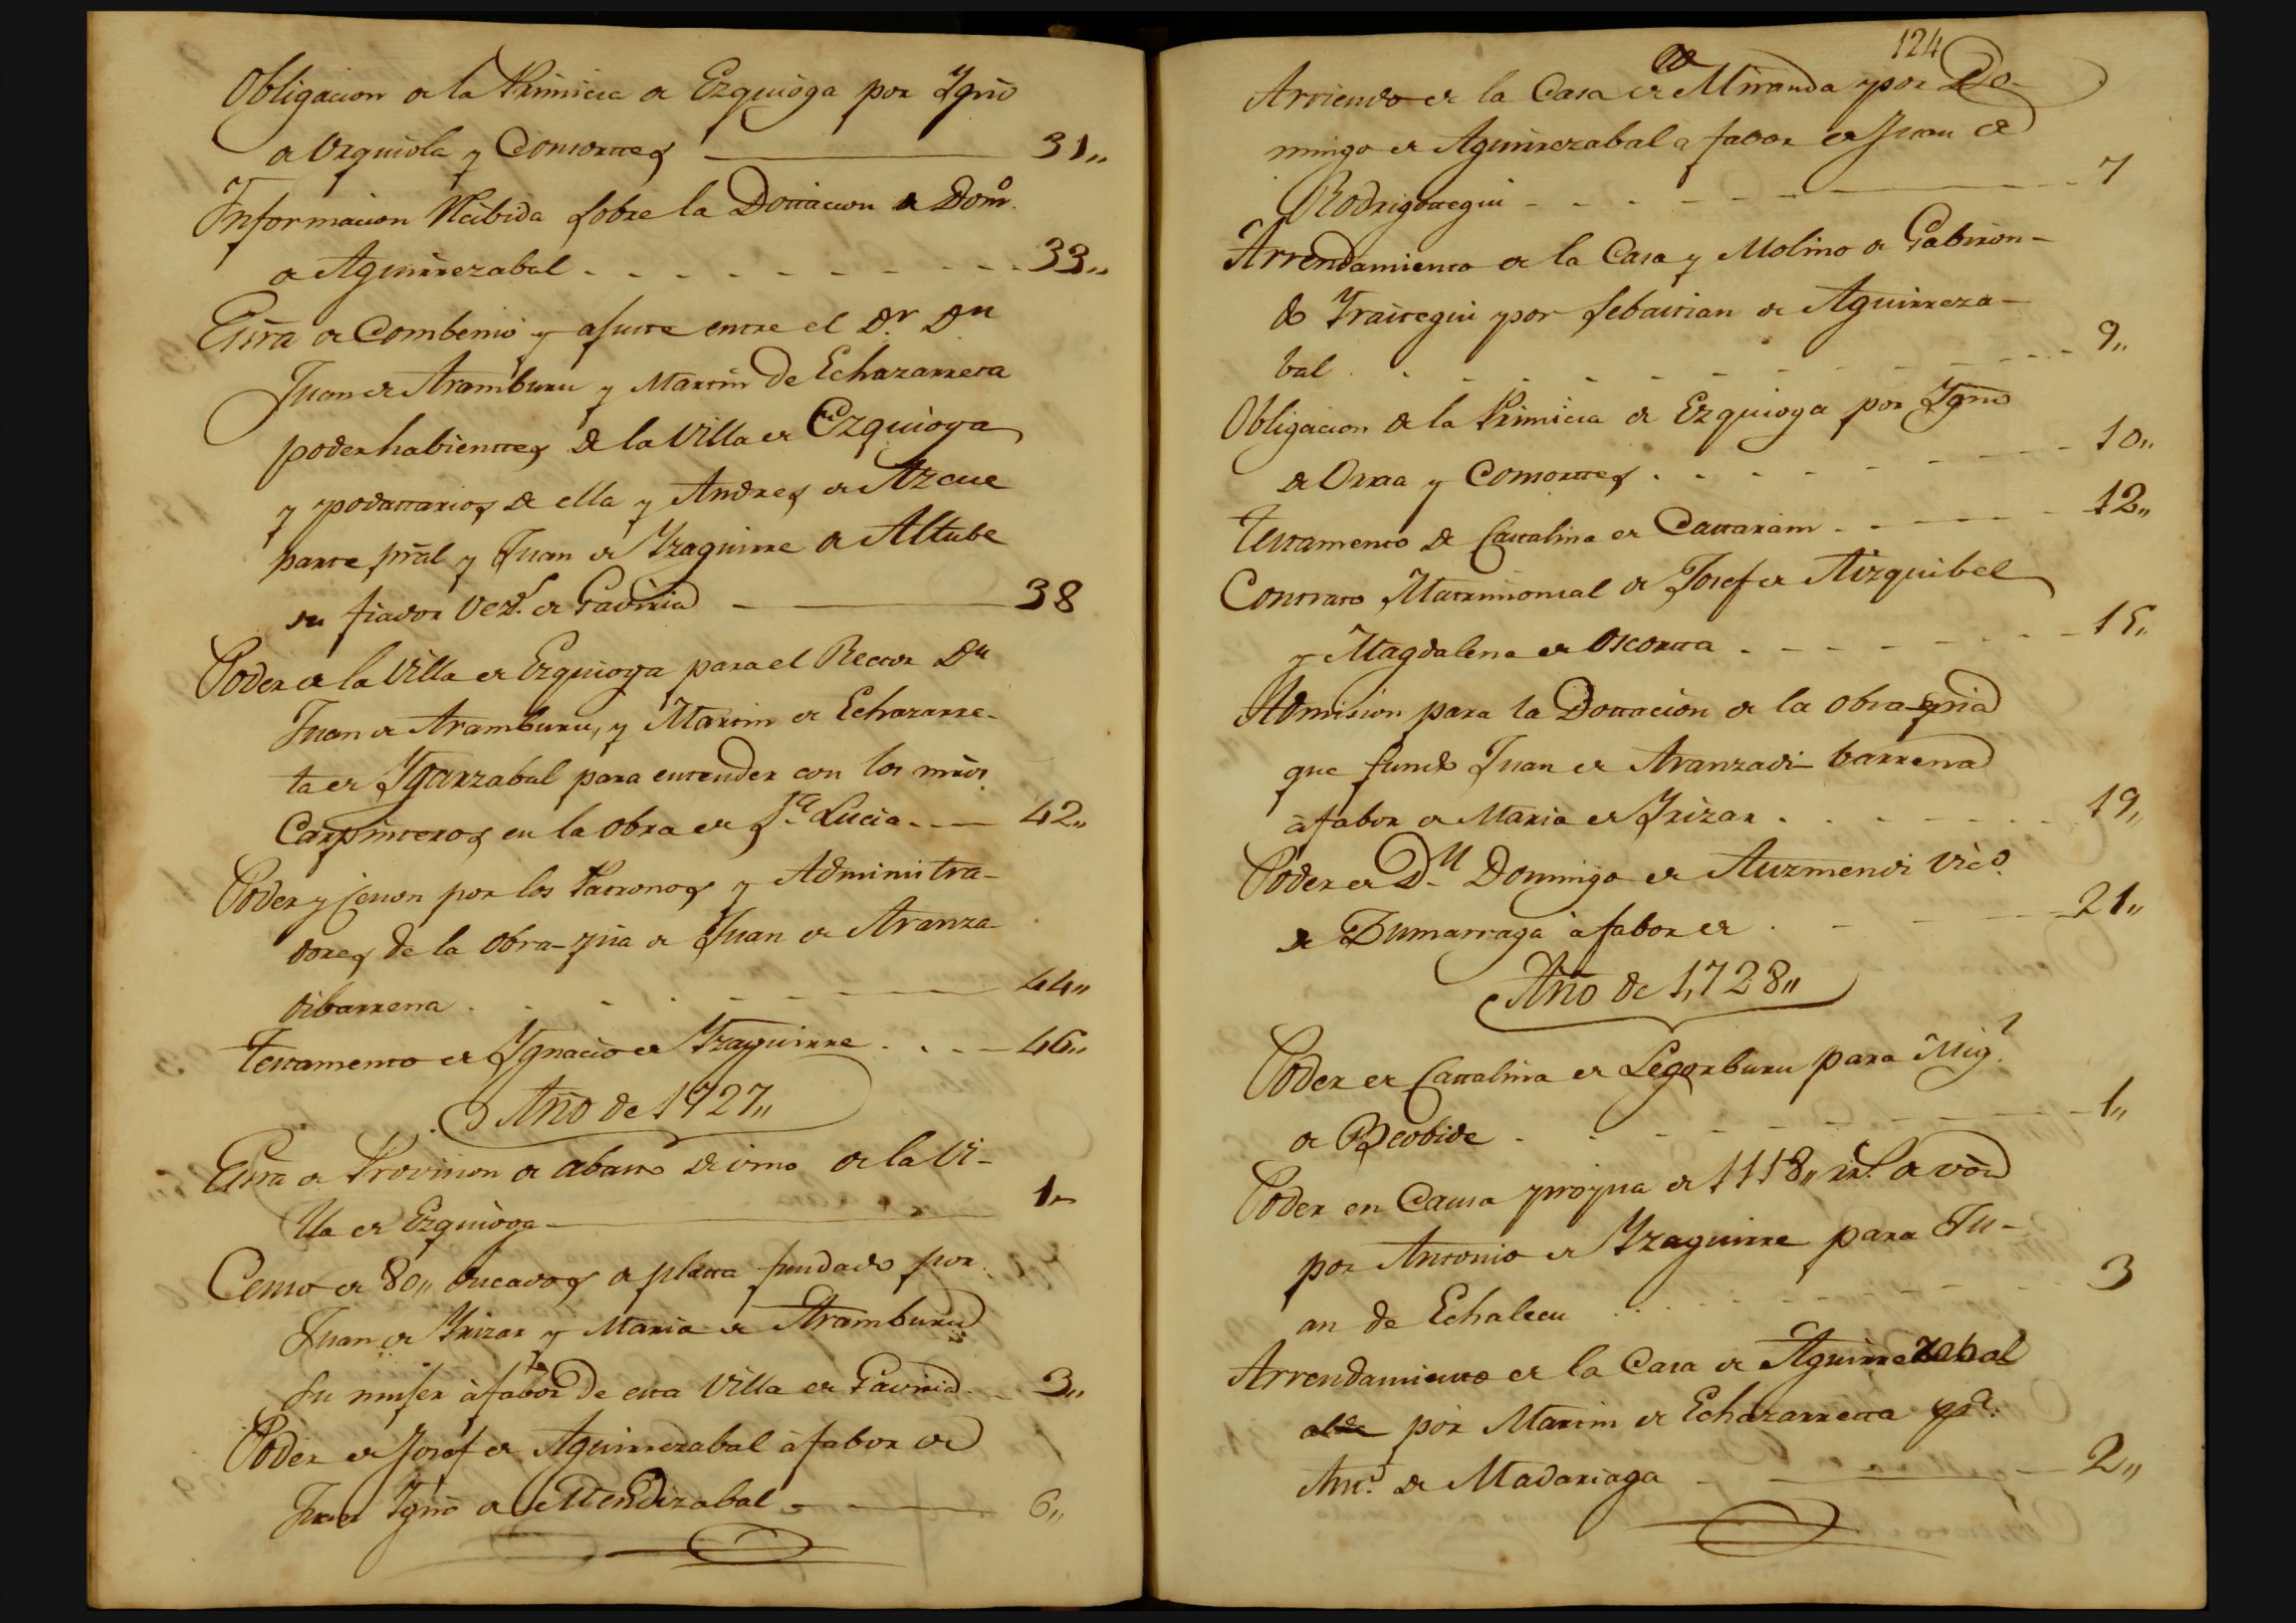 Obligacion de la Primicia de Ezquioga por Ygnº
de Urquiola y Consorttes 31,,
Informacion Recibida sobre la Dottacion de Domº
de Aguirrezabal 33,,
Essra de Combenio y ajuste entre el Dr. Dn
Juan de Aramburu y Martin de Echazarreta
poderhabienttes de la Villa de Ezquioga
y podattarios de ella y Andres de Azcue
parte pral y Juan de Yzaguirre de Altube
su fiador Vezs. de Gaviria 38
Poder de la Villa de Ezquioga para el Rector Dn
Juan de Aramburu, y Martin de Echazarre-
ta de Ygarzabal para entender con los mros
Carpinteros en la obra de Sta. Lucia 42,,
Poder y Cesion por los Patronos y Adminitra-
dores de la Obra-pia de Juan de Aranza-
dibarrena 44,,
Testamento de Ygnacio de Yzaguirre 46,,
Año de 1727,,
Essra de Provision de abasto de vino de la Vi-
lla de Ezquioga 1,,
Censo de 80,, ducados de platta fundado por
Juan de Yrizar y Maria de Aramburu
su muger à fabor de esta Villa de Gaviria 3,,
Poder de Josef de Aguirrezabal à fabor de
Juan Ygnº de Mendizabal 6,,
124
Arriendo de la Casa de Miranda por Do-
mingo de Aguirrezabal a favor de Juan de
Rodrigottegui 7
Arrendamiento de la Casa y Molino de Gabiron-
do Yraitegui por Sebastian de Aguirreza-
bal 9,,
Obligacion de la Primicia de Ezquioga por Ygnº
de Orria y Consorttes 10,,
Testamento de Cattalina de Cattarain 12,,
Contrato Matrimonial de Josef de Aizquibel
y Magdalena de Oscortta 15,,
Admision para la Dottacion de la obra-pia
que fundo Juan de Aranzadi-barrena
à fabor de Maria de Yrizar 19,,
Poder de Dn Domingo de Auzmendi Vicº
de Zumarraga à fabor de 21,,
Año de 1,728,,
Poder de Cattalina de Legorburu para Migl
de Beobide 1,,
Poder en Causa propia de 1118,, rrs. de von
por Antonio de Yzaguirre para Ju-
an de Echalecu 3
Arrendamiento de la Casa de Aguirrezabal
alde por Martin de Echazarreta pa.
Antº de Madariaga 2,,